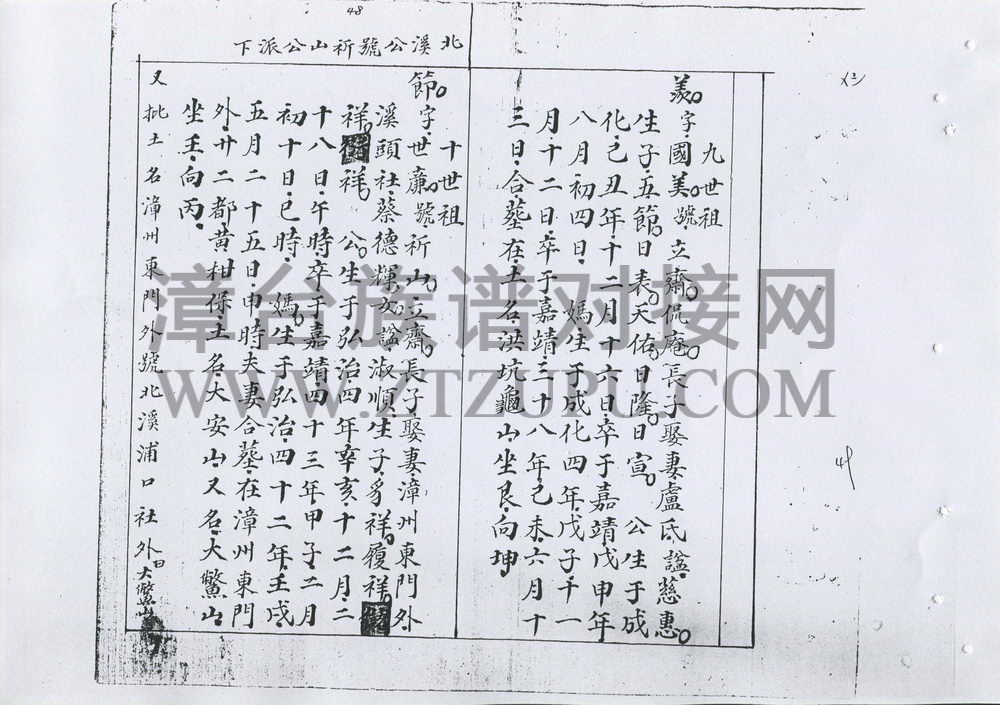 48
北溪公號祈山公派下
九世祖
羨字國美號立齋侃庵長子娶妻盧氏謚慈惠
生子五節曰表天佑曰隆曰宣 公生于成
化己丑年十二月十六日卒于嘉靖戊申年
八月初四日 媽生于成化四年戊子十一
月十二日卒于嘉靖三十八年己未六月十
三日合墓在土名洪坑龜山坐艮向坤
十世祖
節字世廉號祈山立齋長子娶妻漳州東門外
溪頭社蔡德輝女謚淑順生子多祥履祥
祥 祥 公生于弘治四年辛亥十二月二
十八日午時卒于嘉靖四十三年甲子二月
初十日巳時 媽生于弘治四十二年壬戌
五月二十五日申時夫妻合墓在漳州東門
外廿二都黃柑保土名大安山又名大鱉山
坐壬向丙
又批土名漳州東門外號北溪浦口社外曰大鱉山
漳台族谱对接网
WWW.ZTZUPU.COM